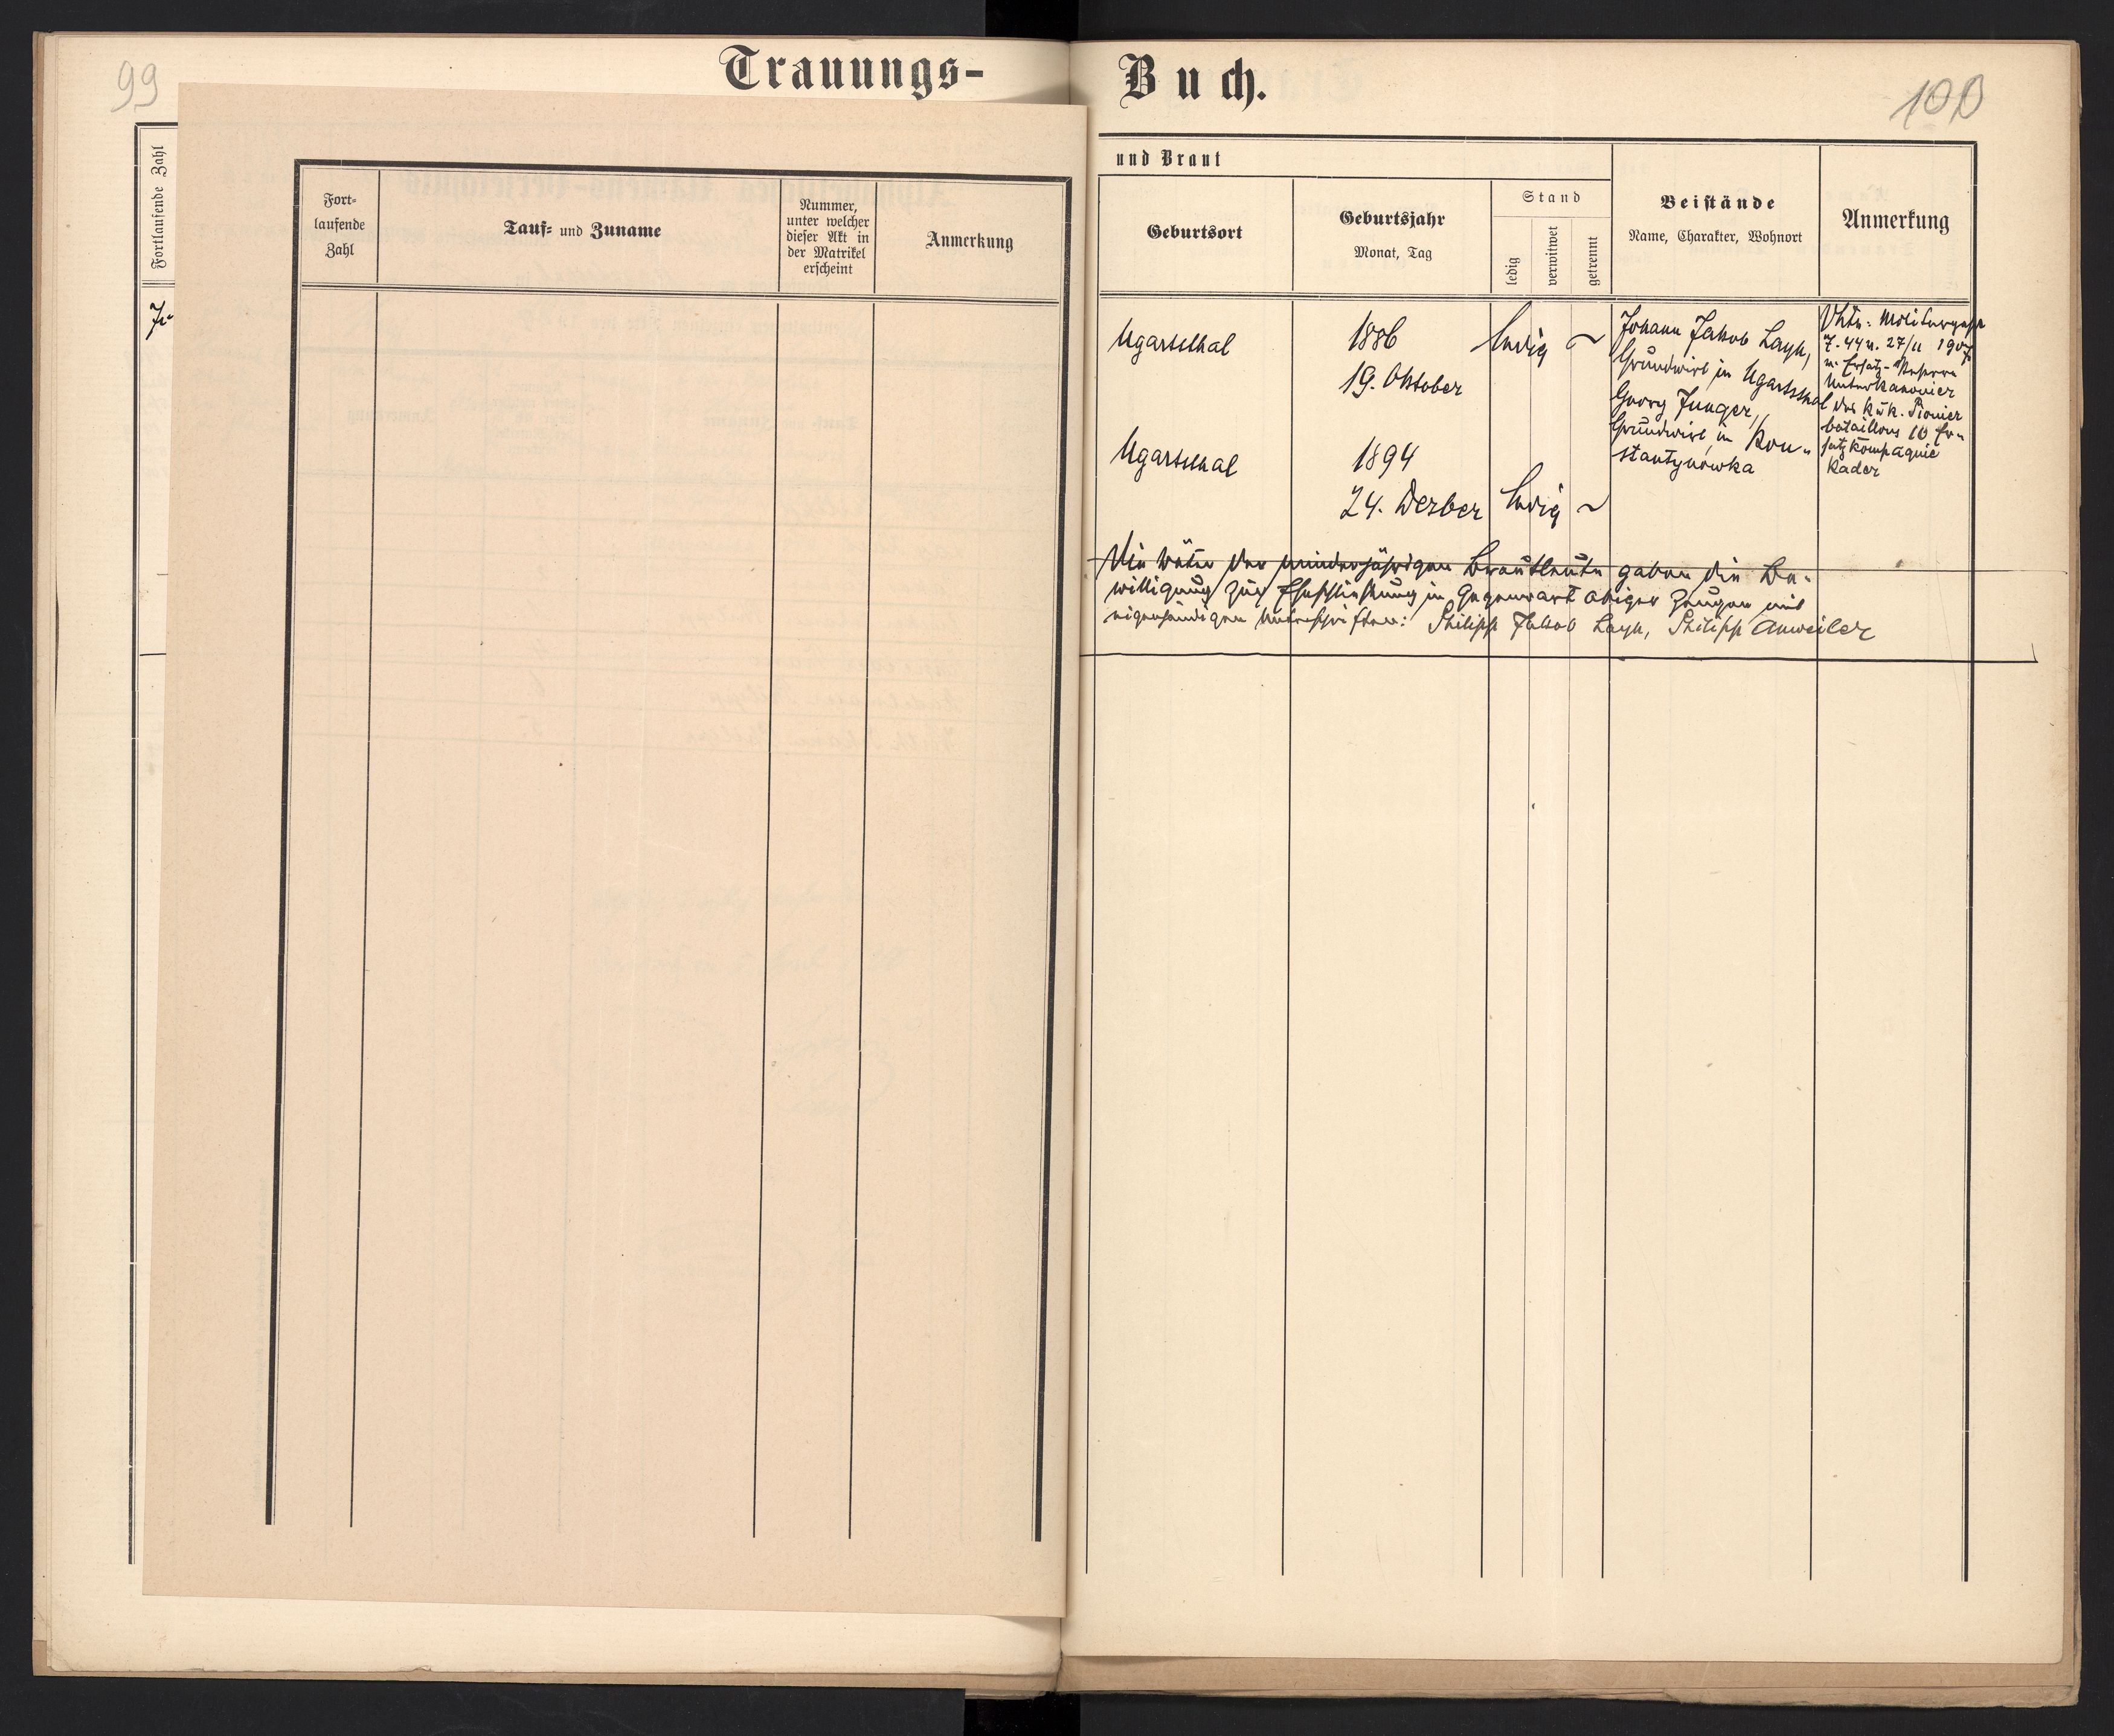 99
Trauungs-
Fortlaufende Zahl
Fort-
laufende
Zahl
Tauf= und Zuname
Nummer,
unter welcher
dieser Akt in
der Matrikel
erscheint
Anmerkung
Buch.
100
und Braut
Geburtsort
Geburtsjahr
Monat, Tag
Stand
ledig
verwitwet
getrennt
Beistände
Name, Charakter, Wohnort
Anmerkung
Ugartsthal
1886
19. Oktober
ledig
Johann Jakob Layh,
Grundwirt in Ugartsthal
Georg Junger,
Grundwirt in Kon-
stantynówka
Z. 44 u. 27/11 1907
Ersatz-Reserve
Unterkanonier
des k.u.k. Pionier
bataillons 10 Er-
satzkompagnie
Kader
Ugartsthal
1894
24. Dezber
ledig
Die Väter der minderjährigen Brautleute gaben die Be-
willigung zur Eheschließung in Gegenwart obiger Zeugen mit
eigenhändigen Unterschriften: Philipp Jakob Layh, Philipp Anweiler